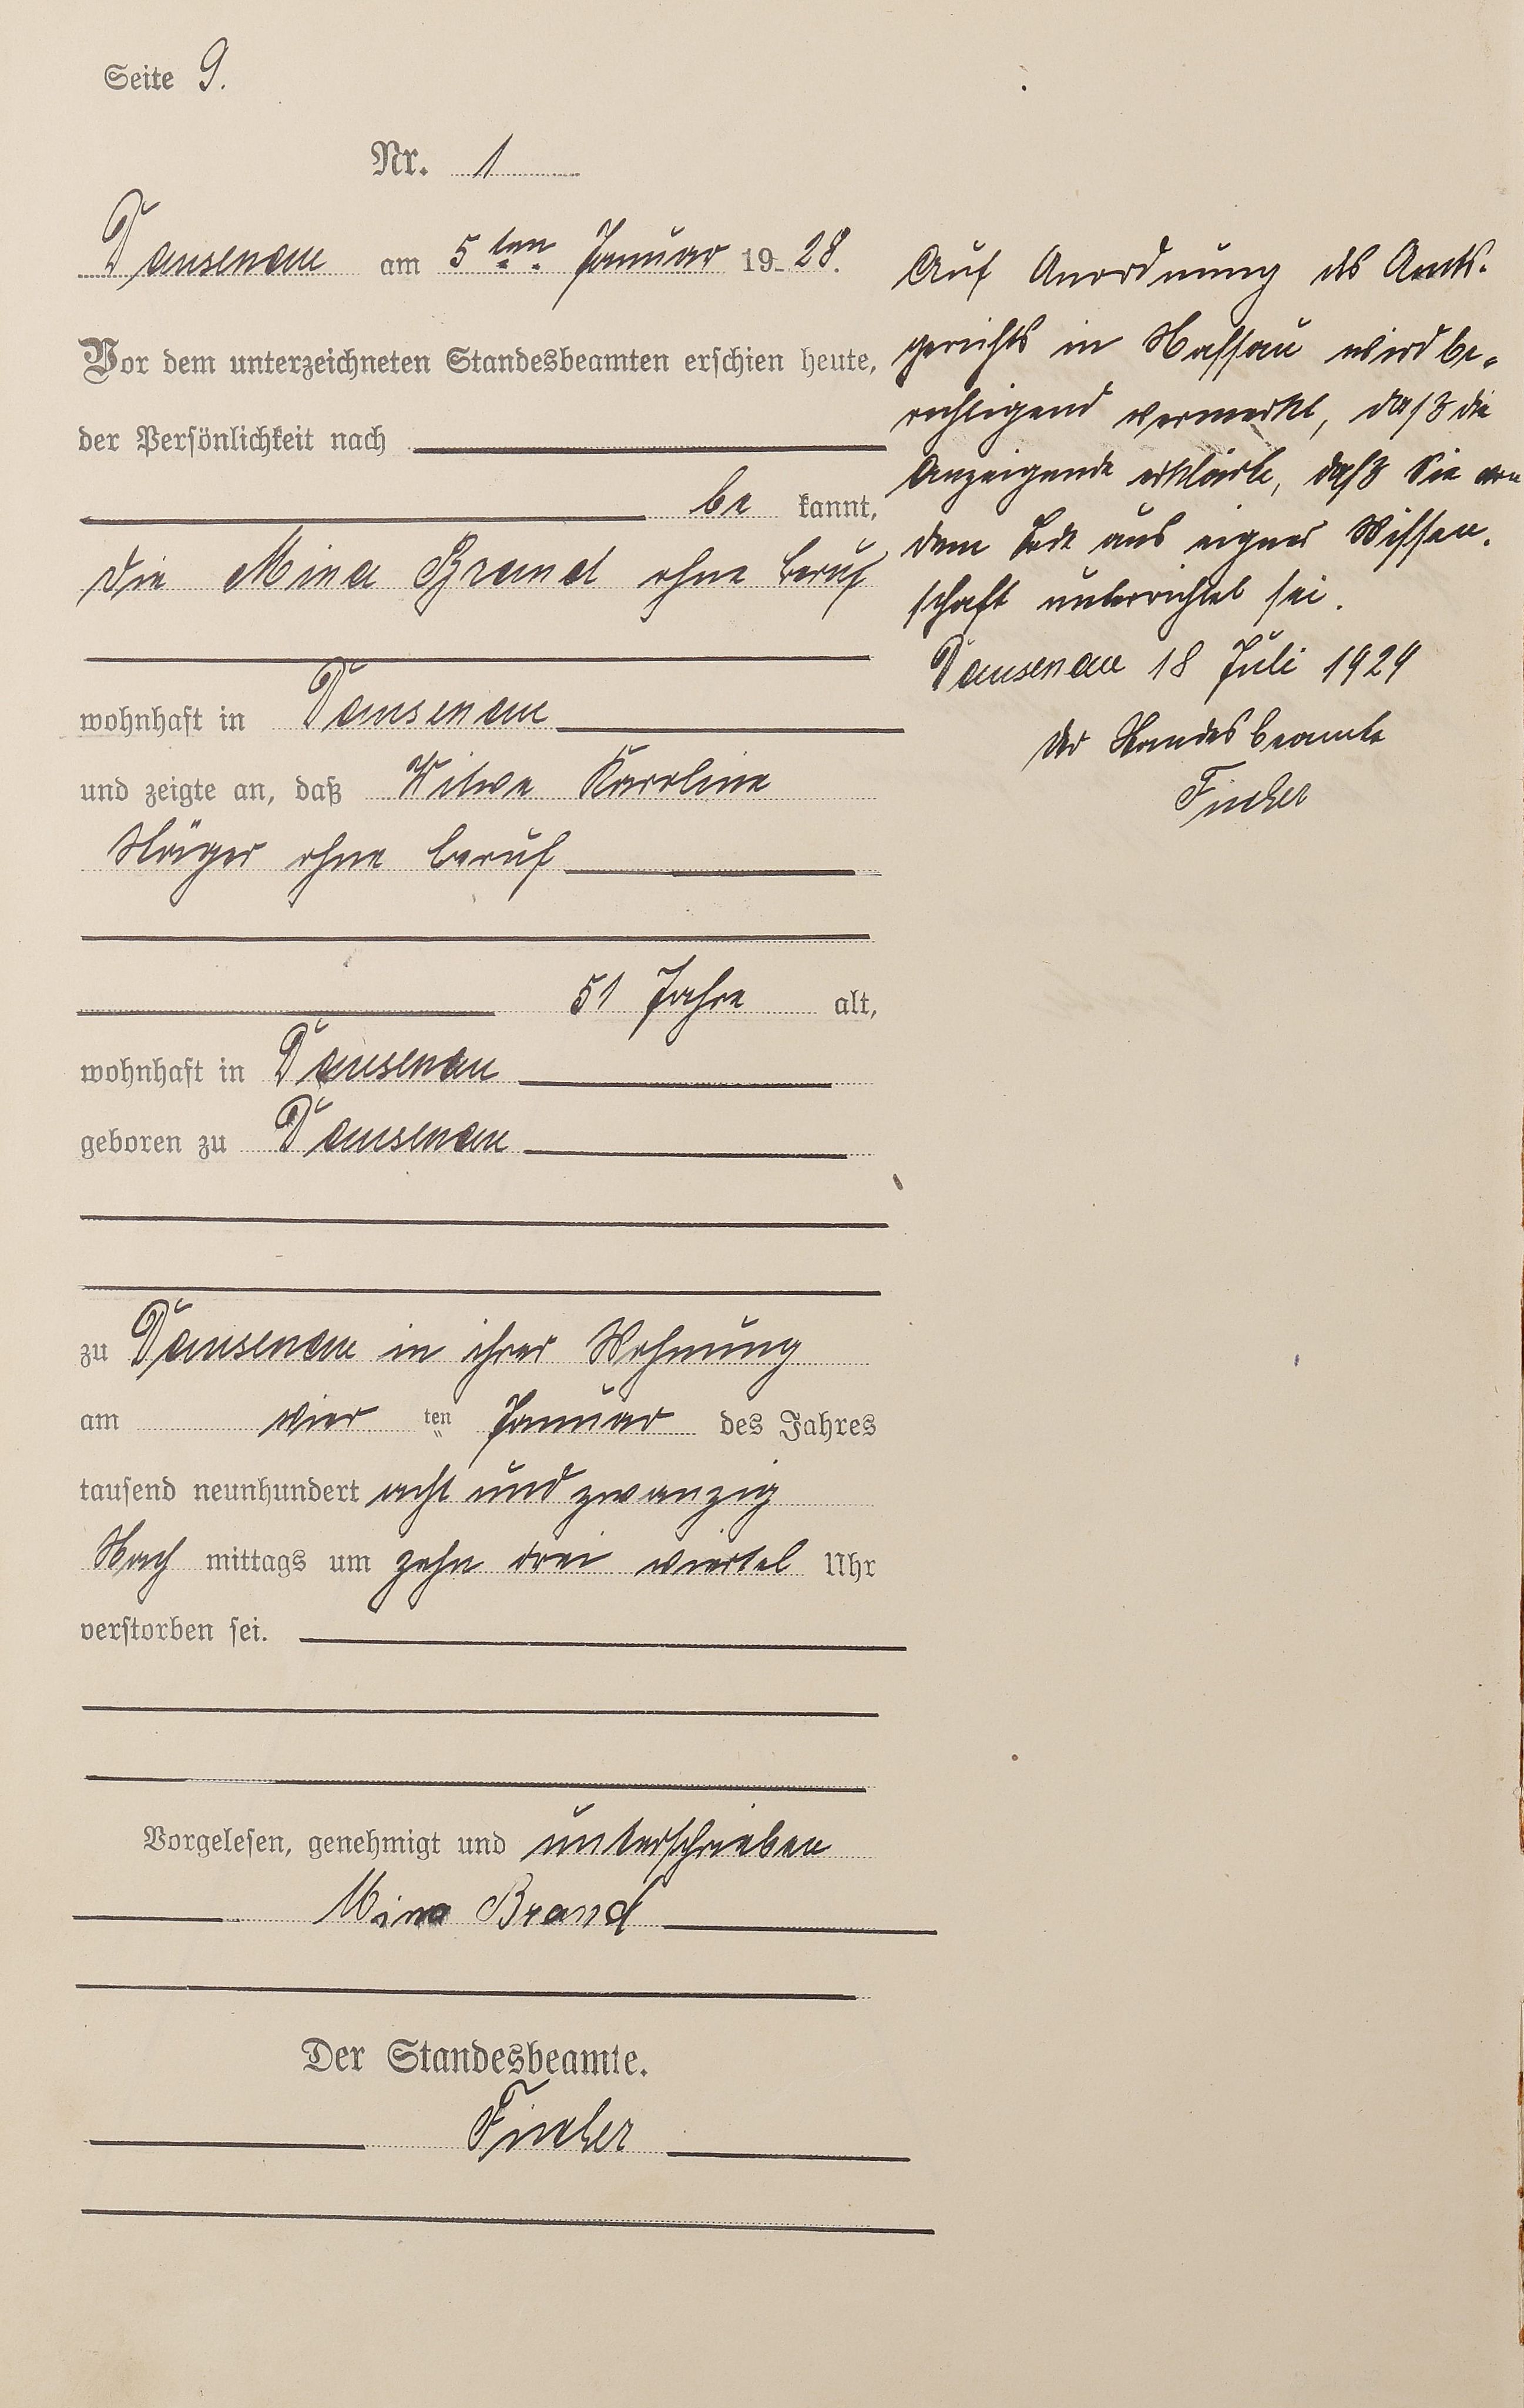 Seite 9.
Nr. 1
Dausenau am 5ten Januar 19 28.
Vor dem unterzeichneten Standesbeamten erschien heute,
der Persönlichkeit nach
be kannt,
die Mina Brand ohne Beruf
wohnhaft in Dausenau
und zeigte an, daß Witwe Karoline
ohne Beruf
51 Jahre alt,
wohnhaft in Dausenau
geboren zu Dausenau
zu Dausenau in ihrer Wohnung
am vier ten Januar des Jahres
tausend neunhundert acht und zwanzig
Nach mittags um zehn drei viertel Uhr
verstorben sei.
Vorgelesen, genehmigt und unterschrieben
Mina Brand
Der Standesbeamte.
Auf Anordnung des Amts-
gerichts in Nassau wird be-
richtigend vermerkt, daß die
Anzeigende erklärte, daß Sie von
dem Tode aus eigner Wissen-
schaft unterrichtet sei.
Dausenau 18 Juli 1929
Der Standesbeamte